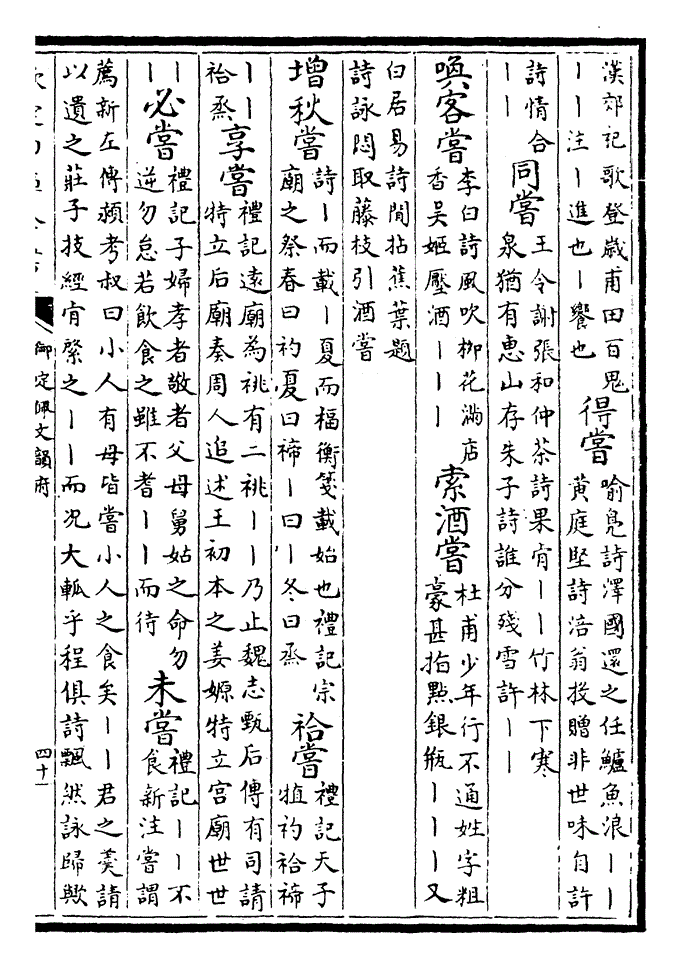 漢郊祀歌登歲甫田百鬼
｜｜注｜進也｜饗也
得嘗
喻鳧詩澤國還之任鱸魚浪｜｜
黃庭堅詩涪翁投贈非世味自許
詩情合
｜｜
同嘗
王令謝張和仲茶詩果肯｜｜竹林下寒
泉猶有惠山存朱子詩誰分殘雪許｜｜
喚客嘗
李白詩風吹柳花滿店
香吳姬壓酒｜｜｜
索酒嘗
杜甫少年行不通姓字粗
豪甚指點銀瓶｜｜｜又
白居易詩閒拈蕉葉題
詩詠悶取藤枝引酒嘗
增秋嘗
詩｜而載｜夏而楅衡箋載始也禮記宗
廟之祭春曰礿夏曰禘｜曰｜冬曰烝
祫嘗
禮記天子
犆礿祫禘
｜｜
祫烝
享嘗
禮記遠廟為祧有二祧｜｜乃止魏志甄后傳有司請
特立后廟奏周人追述王初本之姜嫄特立宮廟世世
｜｜
｜｜
必嘗
禮記子婦孝者敬者父母舅姑之命勿
逆勿怠若飲食之雖不耆｜｜而待
未嘗
禮記｜｜不
食新注嘗謂
薦新左傳潁考叔曰小人有母皆嘗小人之食矣｜｜君之羹請
以遺之莊子技經肯綮之｜｜而況大軱乎程俱詩飄然詠歸歟
御定佩文韻府
四十一